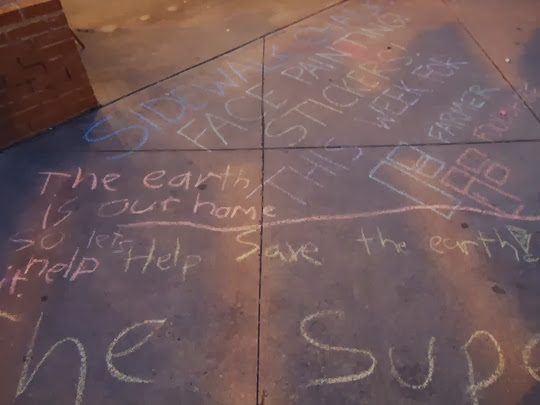 SIDEWALK CHALK
FACE PAINTING
STICKERS!
THIS WEEK FOR
FARMER
The earth
is our home
so let's
help Help Save the earth
it!
he Supe